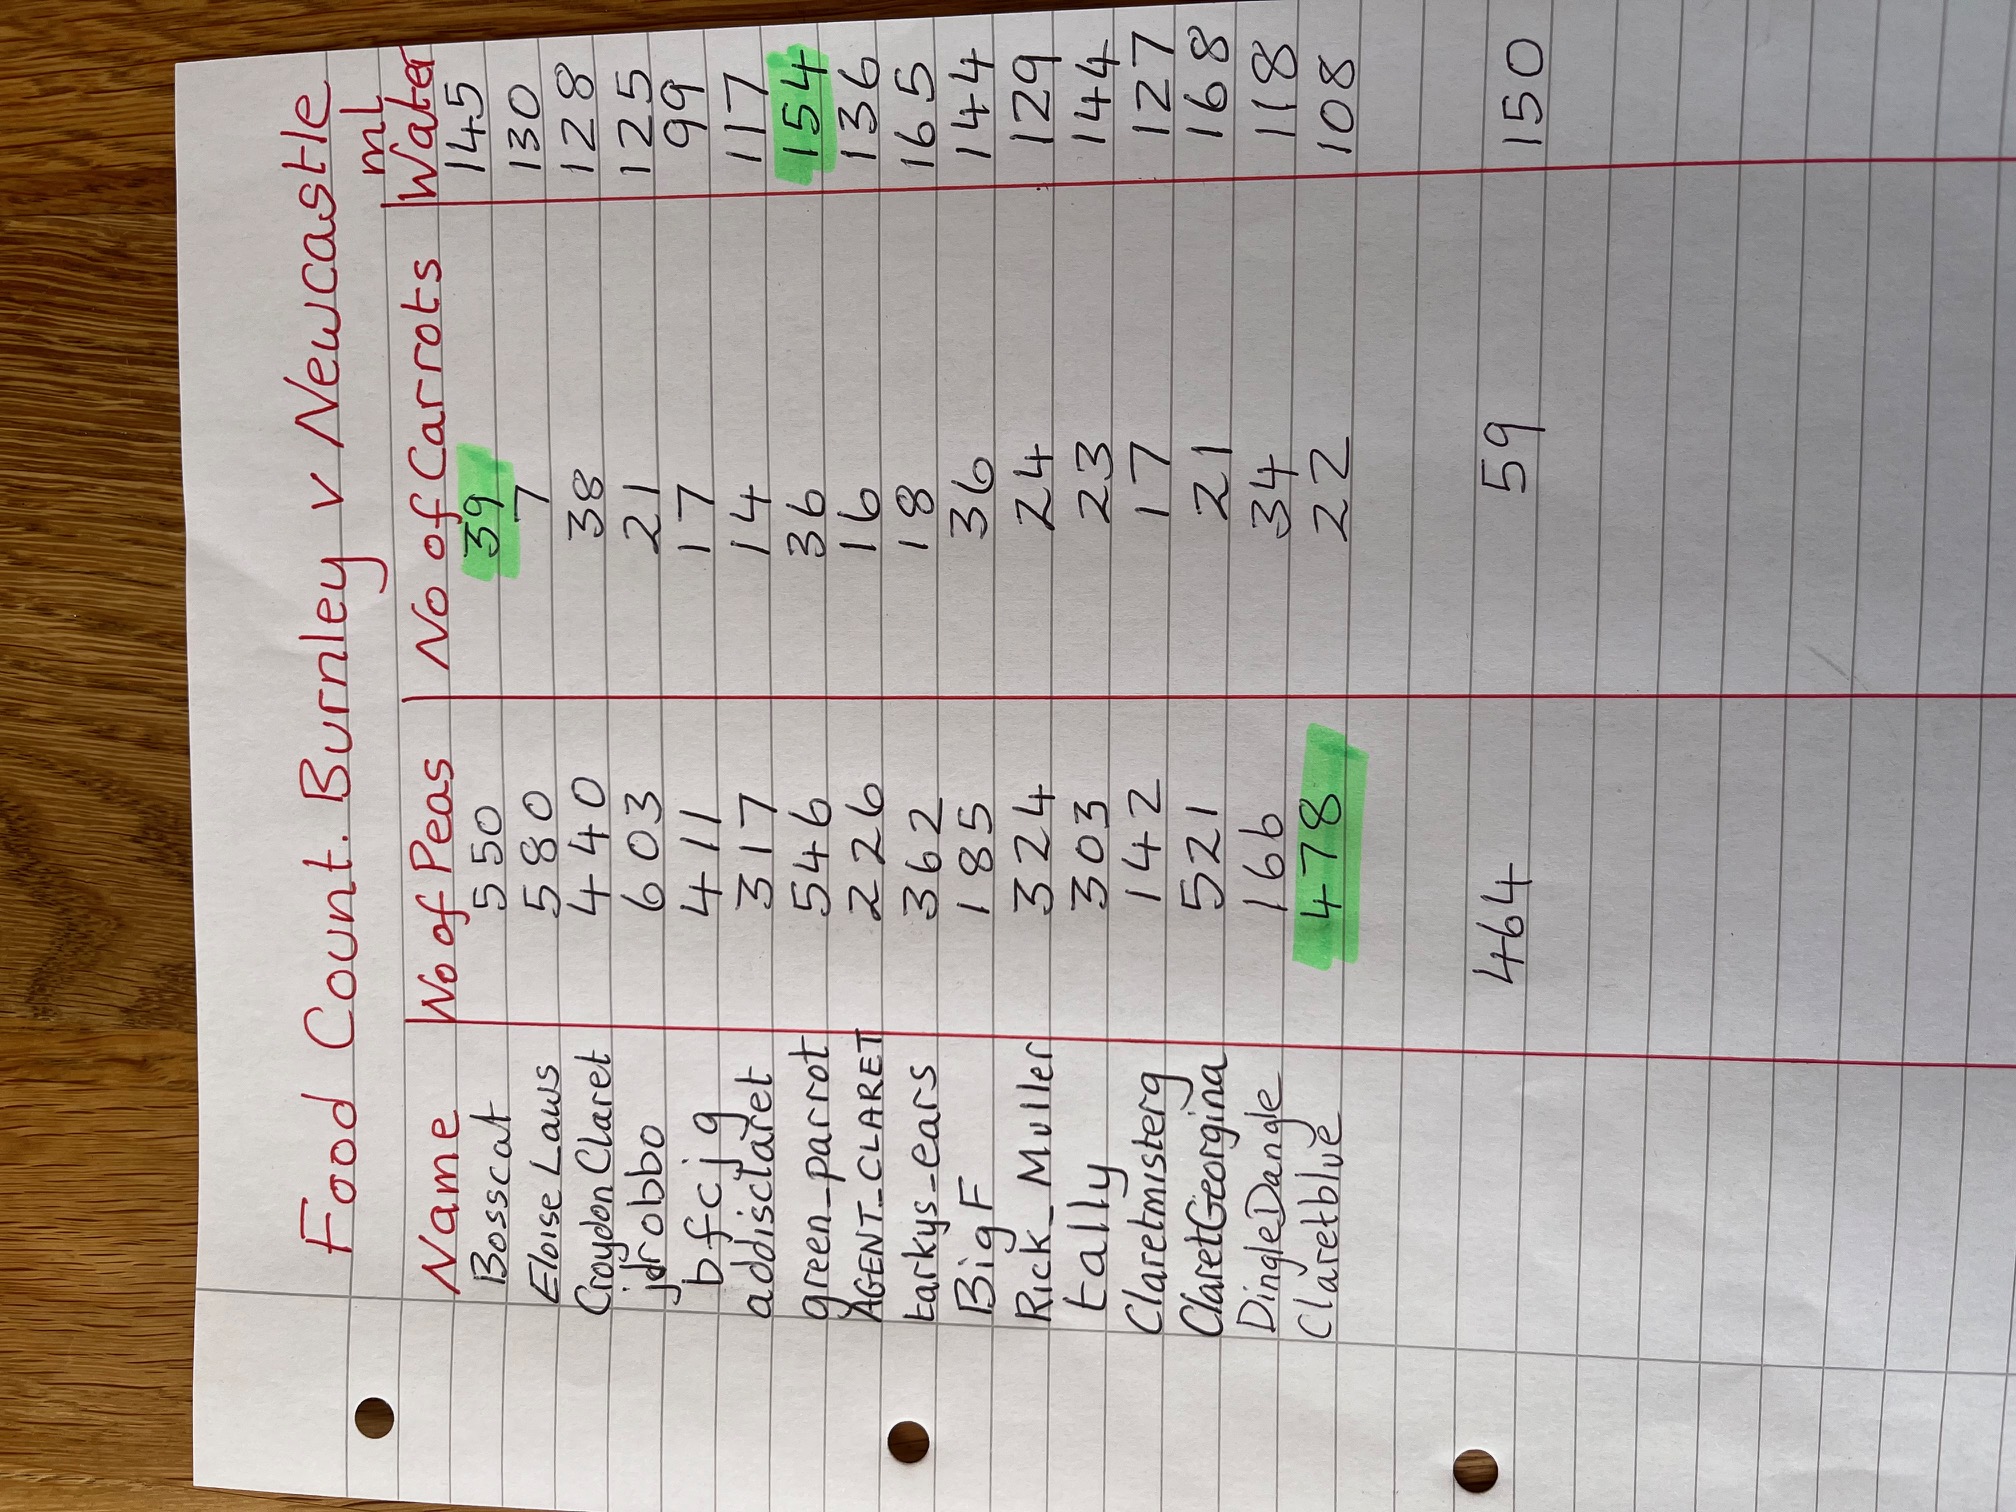 Food Count. Burnley v Newcastle
Name No of Peas No of Carrots mL Water
Bosscat 550 39 145
Eloise Laws 580 7 130
Croydon Claret 440 38 128
jdrobbo 603 21 125
bfcjg 411 17 99
addisclaret 317 14 117
green_parrot 546 36 154
AGENT_CLARET 226 16 136
tarkys_ears 362 18 165
BigF 185 36 144
Rick_Muller 324 24 129
tally 303 23 144
Claretmisterg 142 17 127
ClaretGeorgina 521 21 168
DingleDangle 166 34 118
Claretblue 478 22 108
464 59 150